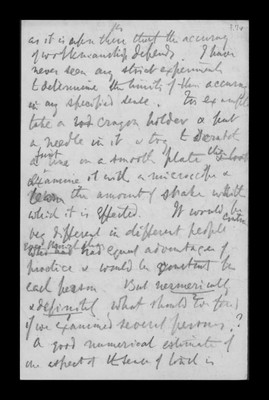 as it is upon them that the accuracy
of workmanship depends. I have
never seen any strict experiments
to determine the limits of their accuracy
in any specified sense. For example
take a crayon holder & put
a needle in it & try to scratch
a line on a smooth plate then
examine it with a microscope &
learn the amount of shake with
which it is effected. It would be
very different in different people
who had had equal advantages of
practice & would be constant for
each person But numerically
& definitely what should we find
if we examined several persons?
A good numerical estimate of
one aspect of the sense of touch is